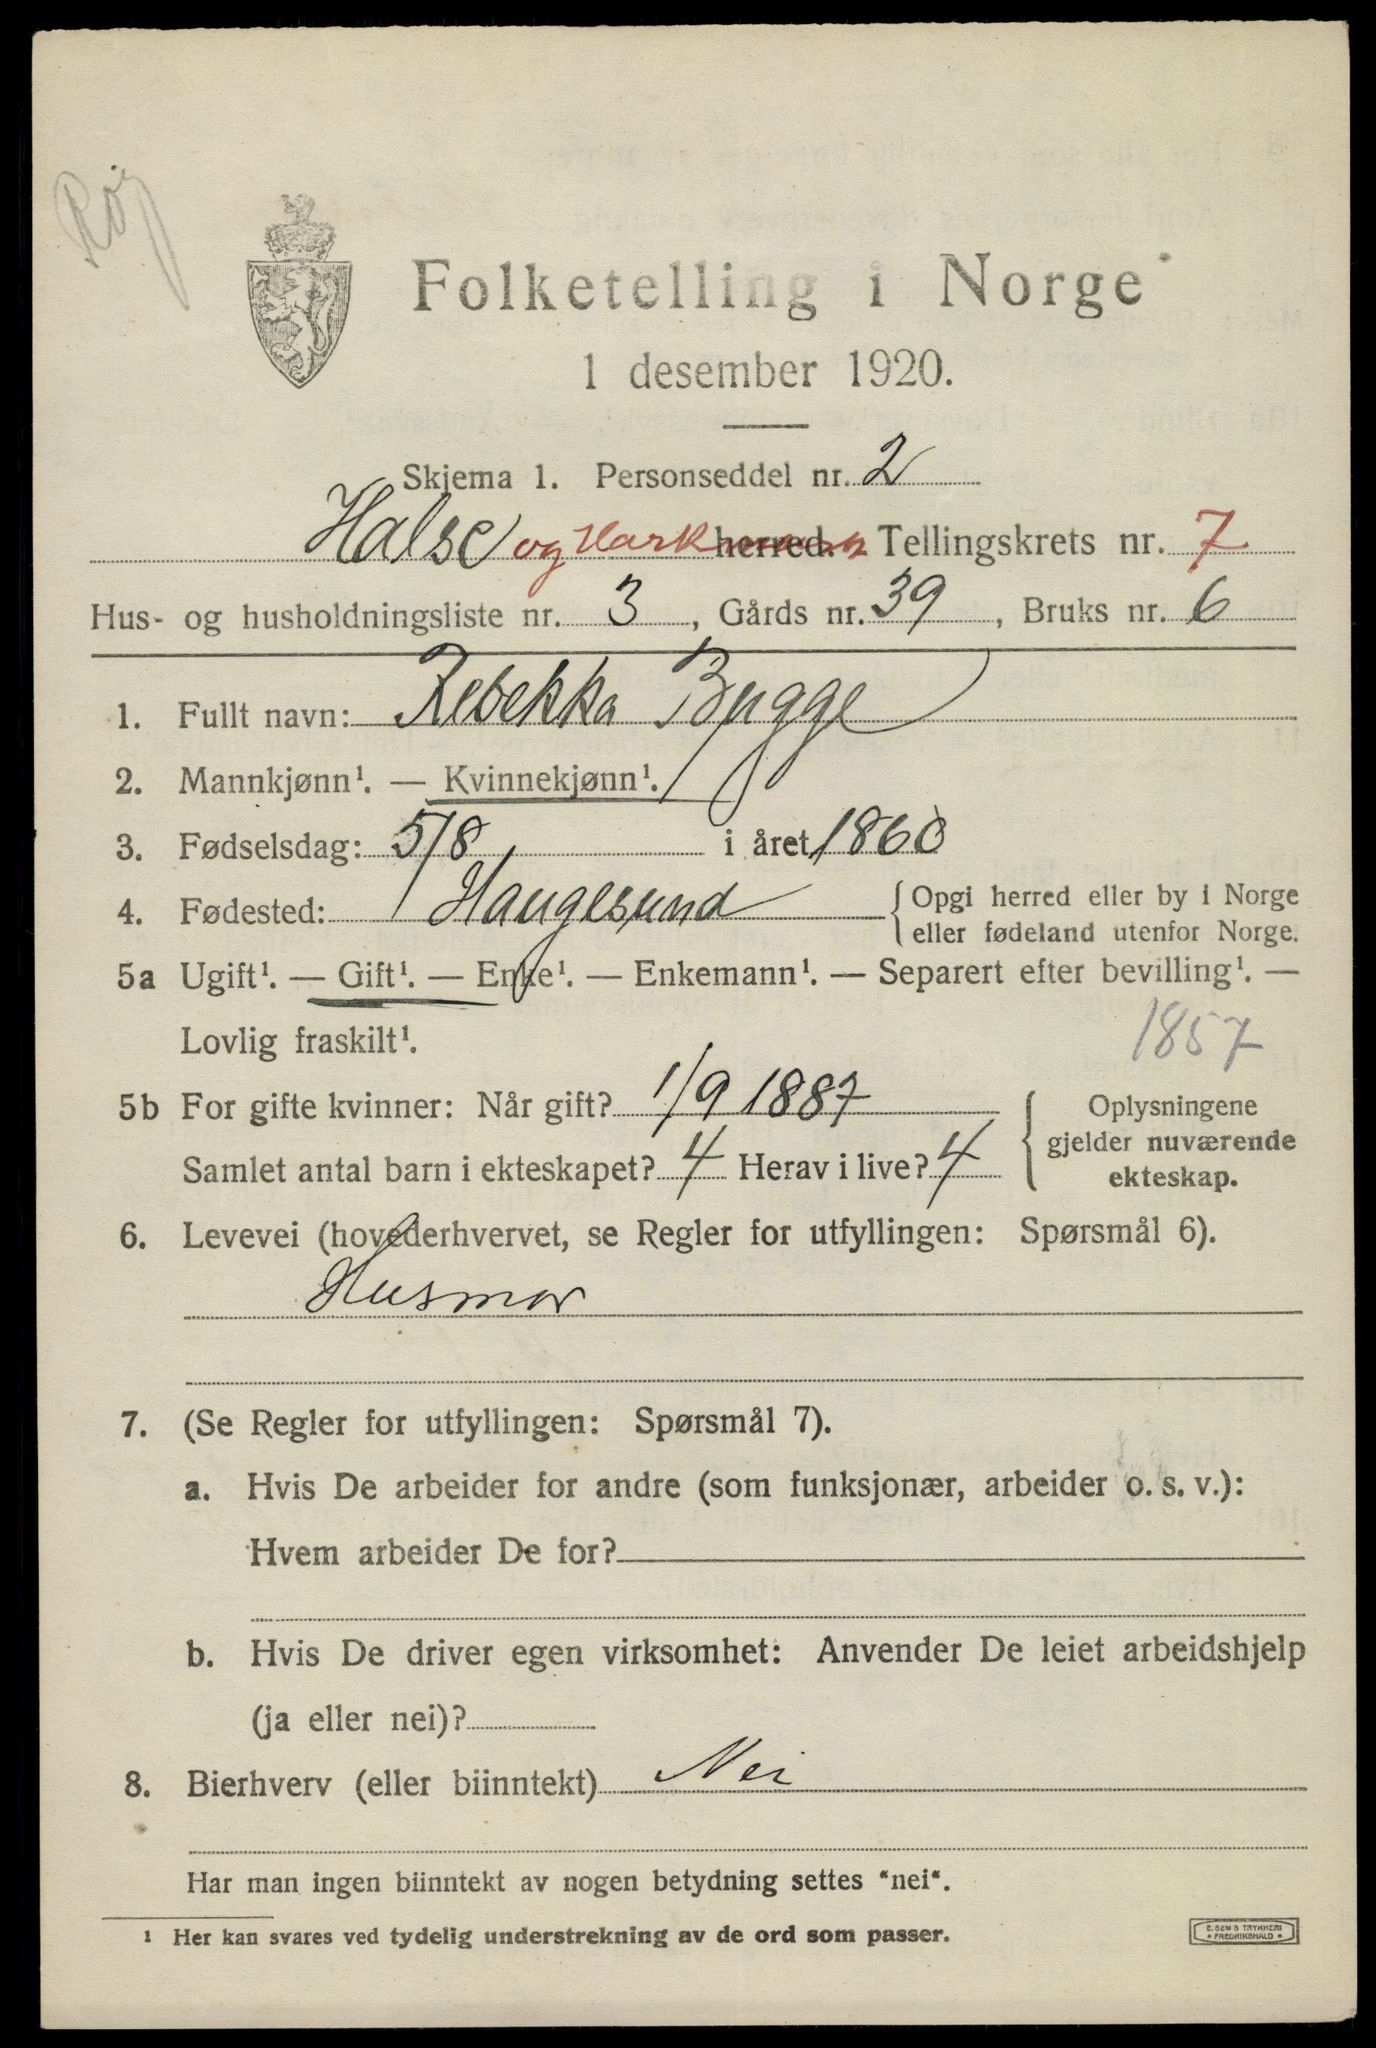 Røj
Folketelling i Norge
1 desember 1920.
Skjema 1. Personseddel nr. 2
Halse og Hark herred. Tellingskrets nr. 7
Hus- og husholdningsliste nr. 3, Gårds nr. 39, Bruks nr. 6
1. Fullt navn: Rebekka Bugge
2. Mannkjønn¹. — Kvinnekjønn¹.
3. Fødselsdag: 5/8 i året 1860
4. Fødested: Haugesund { Opgi herred eller by i Norge
eller fødeland utenfor Norge.
5a Ugift¹. — Gift¹. — Enke¹. — Enkemann¹. — Separert efter bevilling¹. —
Lovlig fraskilt¹. 1857
5b For gifte kvinner: Når gift? 1/9 1887
Samlet antal barn i ekteskapet? 4 Herav i live? 4
Oplysningene
gjelder nuværende
ekteskap.
6. Levevei (hovederhvervet, se Regler for utfyllingen: Spørsmål 6).
Husmor
7. (Se Regler for utfyllingen: Spørsmål 7).
a. Hvis De arbeider for andre (som funksjonær, arbeider o. s. v.):
Hvem arbeider De for?
b. Hvis De driver egen virksomhet: Anvender De leiet arbeidshjelp
(ja eller nei)?
8. Bierhverv (eller biinntekt) Nei
Har man ingen biinntekt av nogen betydning settes "nei".
1 Her kan svares ved tydelig understrekning av de ord som passer.
E. SEM'S TRYKKERI
* FREDRIKSHALD *